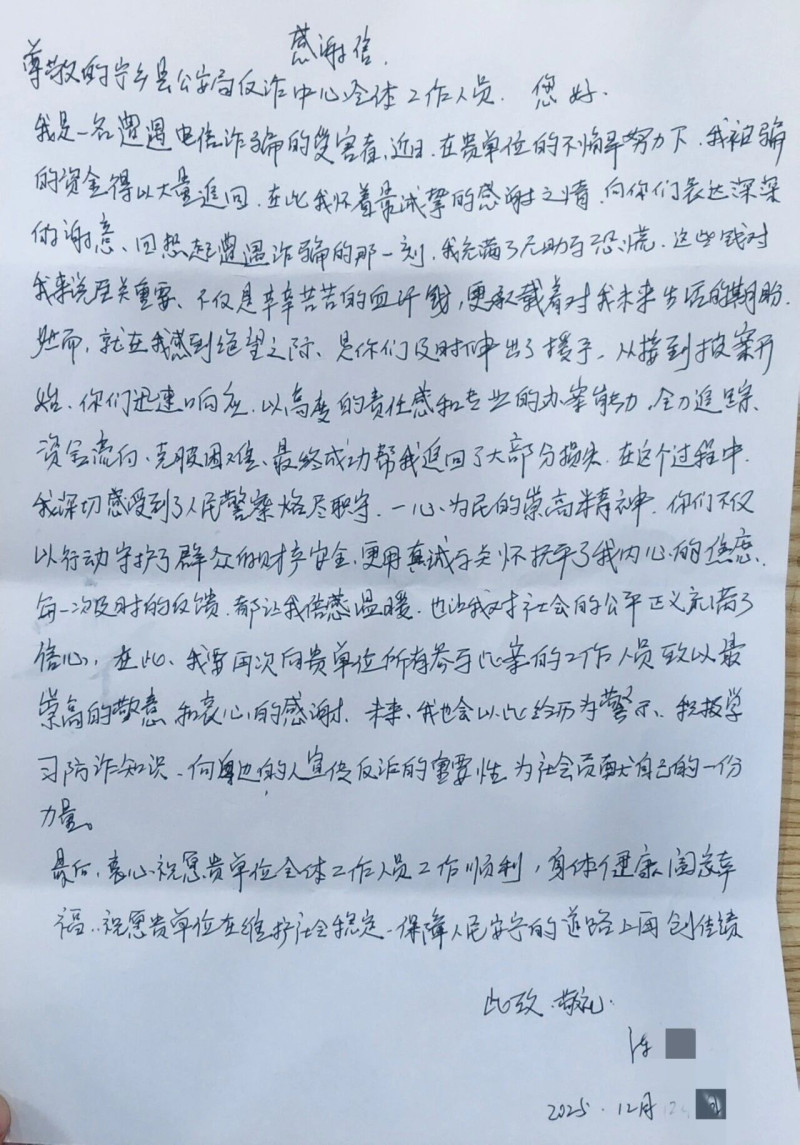 感谢信.
尊敬的宁乡县公安局反诈中心全体工作人员. 您好.
我是一名遭遇电信诈骗的受害者,近日.在贵单位的不懈努力下.我被骗
的资金得以大量追回.在此我怀着最诚挚的感谢之情.向你们表达深深
的谢意、回想起遭遇诈骗的那一刻.我充满了无助与恐慌.这些钱对
我来说至关重要、不仅是辛辛苦苦的血汗钱,更承载着对我未来生活的期盼.
然而,就在我感到绝望之际、是你们及时伸出了援手.从接到报案开
始、你们迅速响应.以高度的责任感和专业的办案能力.全力追踪、
资金流向、克服困难、最终成功帮我追回了大部分损失.在这个过程中.
我深切感受到了人民警察恪尽职守.一心为民的崇高精神.你们不仅
以行动守护了群众的财产安全.更用真诚与关怀抚平了我内心的焦虑.
每一次及时的反馈.都让我倍感温暖.也让我对社会的公平正义充满了
信心,在此、我要再次向贵单位所有参与此案的工作人员致以最
崇高的敬意和衷心的感谢.未来、我也会以此经历为警示、积极学
习防诈知识、向身边的人宣传反诈的重要性为社会贡献自己的一份
力量。
最后,衷心祝愿贵单位全体工作人员工作顺利,身体健康阖家幸
福..祝愿贵单位在维护社会稳定、保障人民安宁的道路上再创佳绩
此致.敬礼.
2025.12月